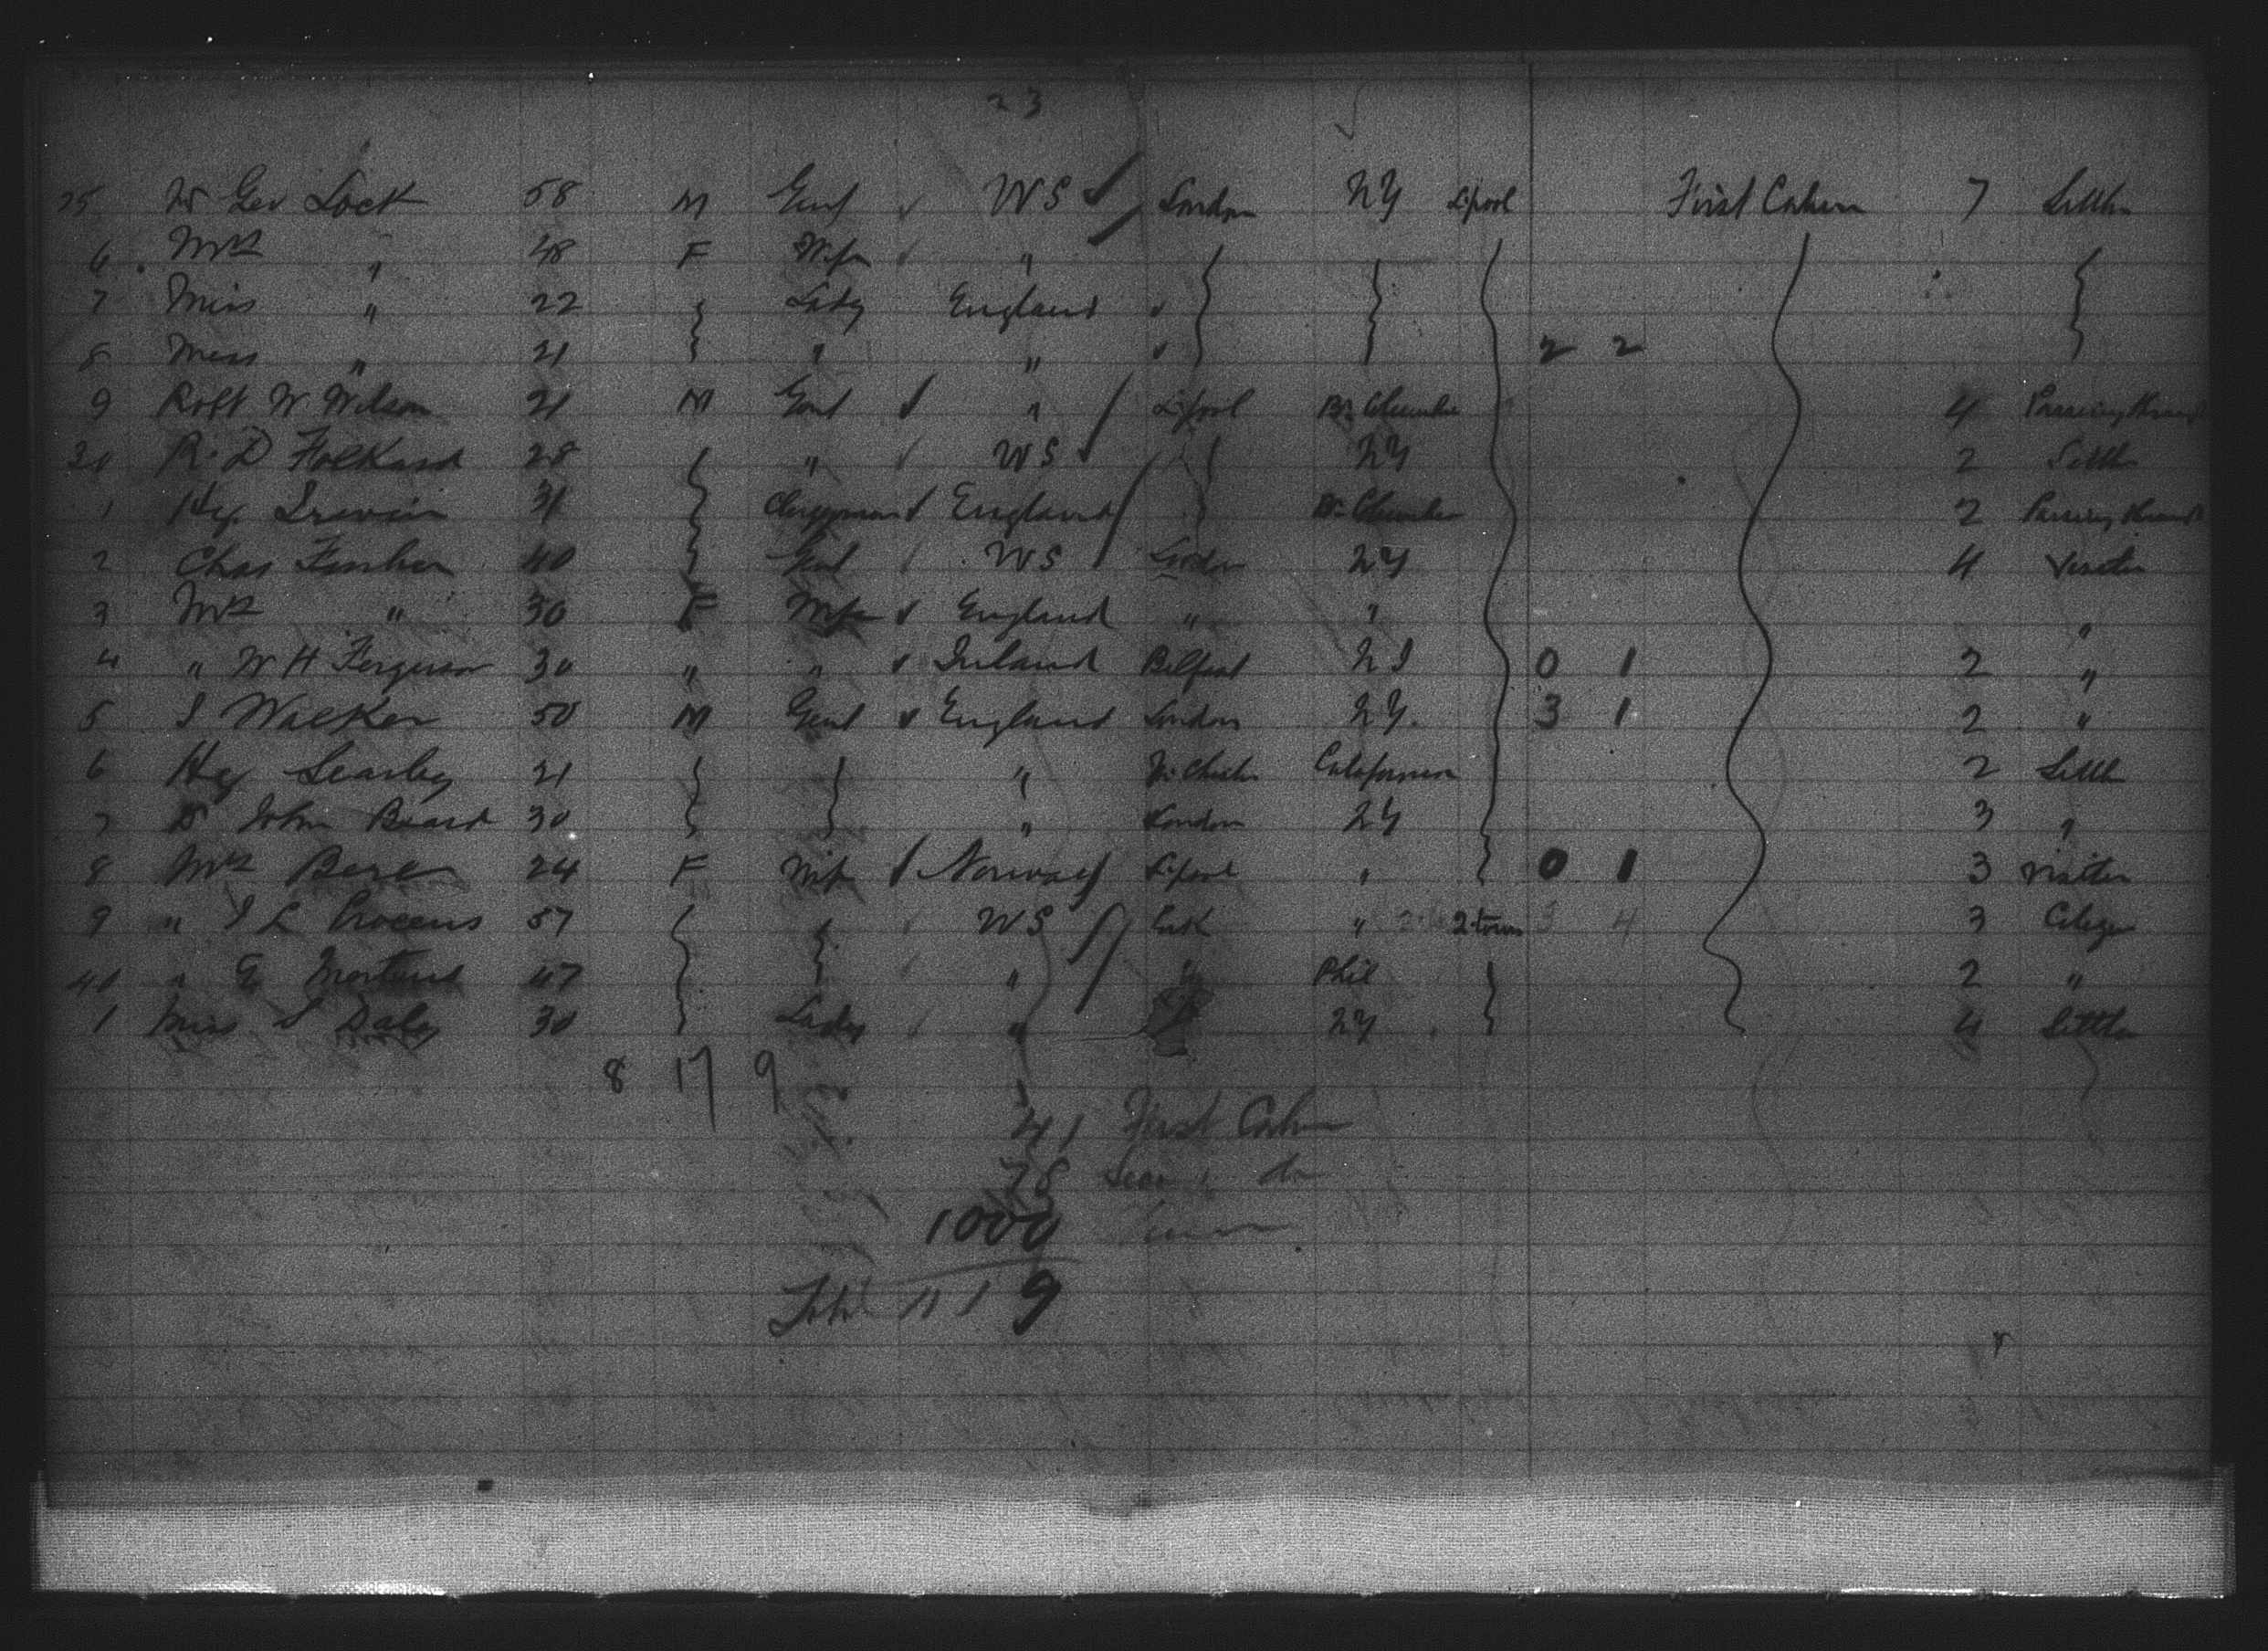 23
25 Geo Lock 58 M Gent W S London N Y L'pool First Cabin 7 Settler
6 Mrs " 48 F Wife "
7 Miss " 22 Lady England
8 Miss " 21 " " 2 2
9 Robt W Wilson 21 M Gent " L'pool Br. Columbia 4 Passing through
30 R. D Folkard 28 " W S N Y 2 Settler
1 Hy. Irwin 31 Clergyman England Br. Columbia 2 Passing through
2 Chas 40 Gent W S London N Y 4 Visitor
3 Mrs " 30 F Wife England " " "
4 " W H Ferguson 30 " " Ireland Belfast 0 1 2 "
5 J Walker 50 M Gent England London N Y. 3 1 2 "
6 Hy Searley 21 " California 2 Settler
7 Dr John Beard 30 " London N Y 3 "
8 Mrs 24 F Wife Norway L'pool " 0 1 3 Visitor
9 " 57 " W S Cork " Q. town 3 4 3 Citizen
40 " 47 " " Phil 2 "
1 Miss S Daly 30 Lady " N Y 4 Settler
8 17 9
41 First Cabin
78 Second do
1000
Total 1119